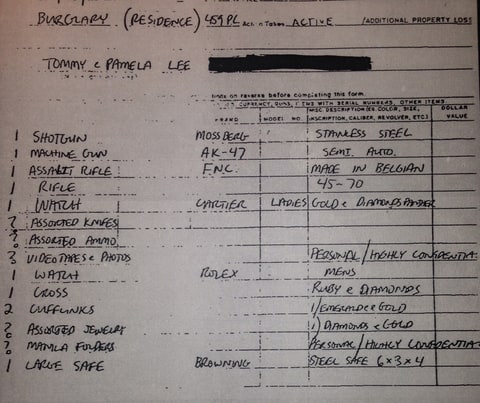 BURGLARY (RESIDENCE) 459PL Action Taken ACTIVE /ADDITIONAL PROPERTY LOSS
TOMMY & PAMELA LEE
on reverse before completing this form.
CURRENCY, GUNS, ITEMS WITH SERIAL NUMBERS, OTHER ITEMS
BRAND MODEL NO MISC DESCRIPTION (EG COLOR, SIZE, INSCRIPTION, CALIBER, REVOLVER, ETC.) DOLLAR VALUE
1 SHOTGUN MOSSBERG STANLESS STEEL
1 MACHINE GUN AK-47 SEMI. AUTO.
1 ASSAULT RIFLE F.N.C. MADE IN BELGIAN
1 RIFLE 45-70
1 WATCH CARTIER LADIES GOLD & DIAMONDS PANDER
? ASSORTED KNIFES
? ASSORTED AMMO
? VIDEO TAPES & PHOTOS PERSONAL/HIGHLY CONFIDENTIAL
1 WATCH ROLEX MENS
1 CROSS RUBY & DIAMONDS
2 CUFFLINKS 1/EMERALD & GOLD
? ASSORTED JEWELRY 1) DIAMONDS & GOLD
? MANILA FOLDERS PERSONAL/HIGHLY CONFIDENTIAL
1 LARGE SAFE BROWNING STEEL SAFE 6x3x4